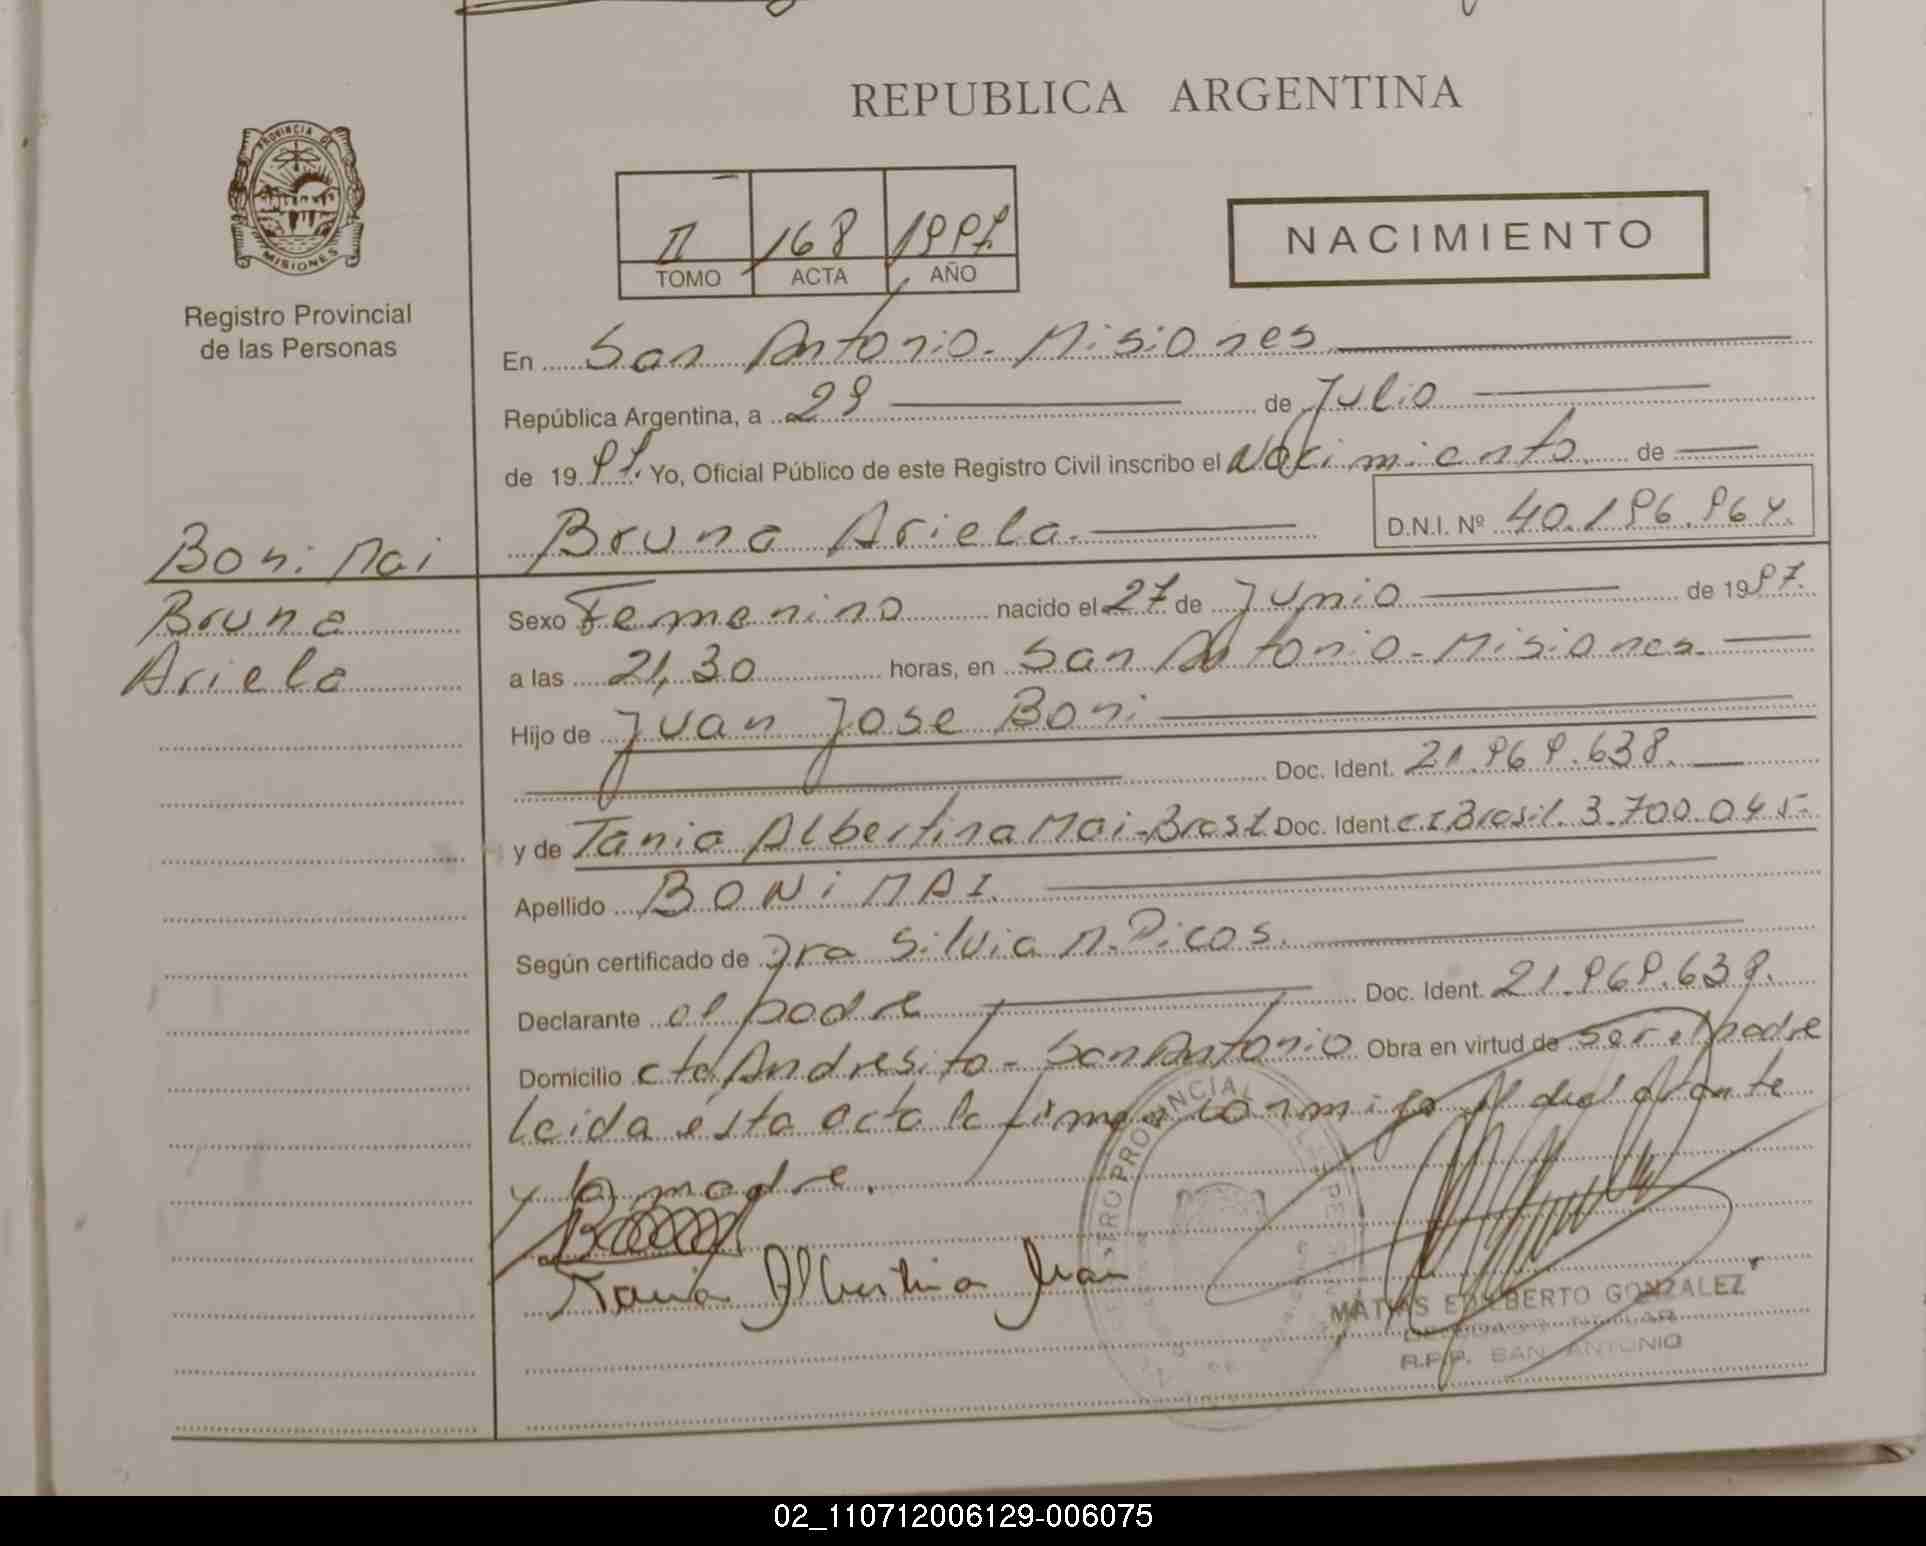 REPUBLICA ARGENTINA
PROVINCIA DE
MISIONES
Registro Provincial
de las Personas
II 168 1997
TOMO ACTA AÑO
NACIMIENTO
En San Antonio - Misiones
República Argentina, a 29 de Julio
de 1997. Yo, Oficial Público de este Registro Civil inscribo el Nacimiento de
Bruna Ariela. D.N.I. Nº 40.196.964.
Boni Mai
Bruna
Ariela
Sexo Femenino nacido el 27 de Junio de 1997.
a las 21,30 horas, en San Antonio - Misiones.
Hijo de Juan Jose Boni
Doc. Ident. 21.969.638.
y de Tania Albertina Mai - Brasl Doc. Ident. C.I. Brasil. 3.700.045-
Apellido BONi MAI.
Según certificado de Dra Silvia M. Picos.
Declarante el padre Doc. Ident. 21.969.638.
Domicilio cto Andresito - San Antonio Obra en virtud de ser el padre
leida esta acta la firman conmigo el declarante
y la madre.
Tania Albertina Mai
REGISTRO PROVINCIAL DE LAS PERSONAS
MATIAS EDILBERTO GONZALEZ
DELEGADO TITULAR
R.P.P. SAN ANTONIO
02_110712006129-006075